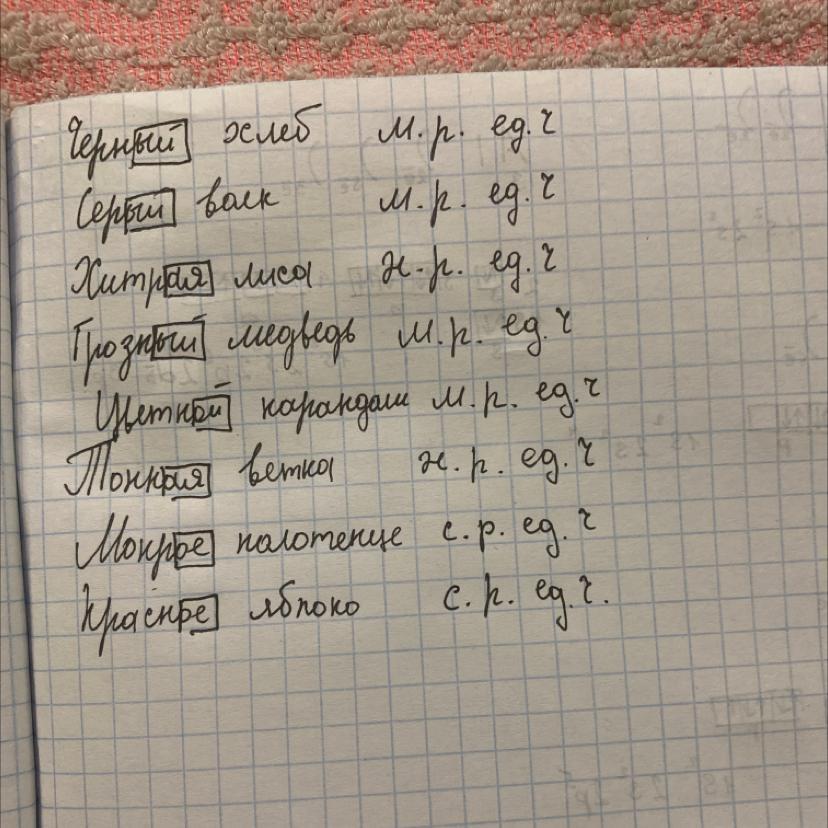 Черный хлеб м.р. ед.ч
Серый волк м.р. ед.ч
Хитрая лиса ж.р. ед.ч
Грозный медведь м.р. ед.ч
Цветной карандаш м.р. ед.ч
Тонкая ветка ж.р. ед.ч
Мокрое полотенце с.р. ед.ч
Красное яблоко с.р. ед.ч.